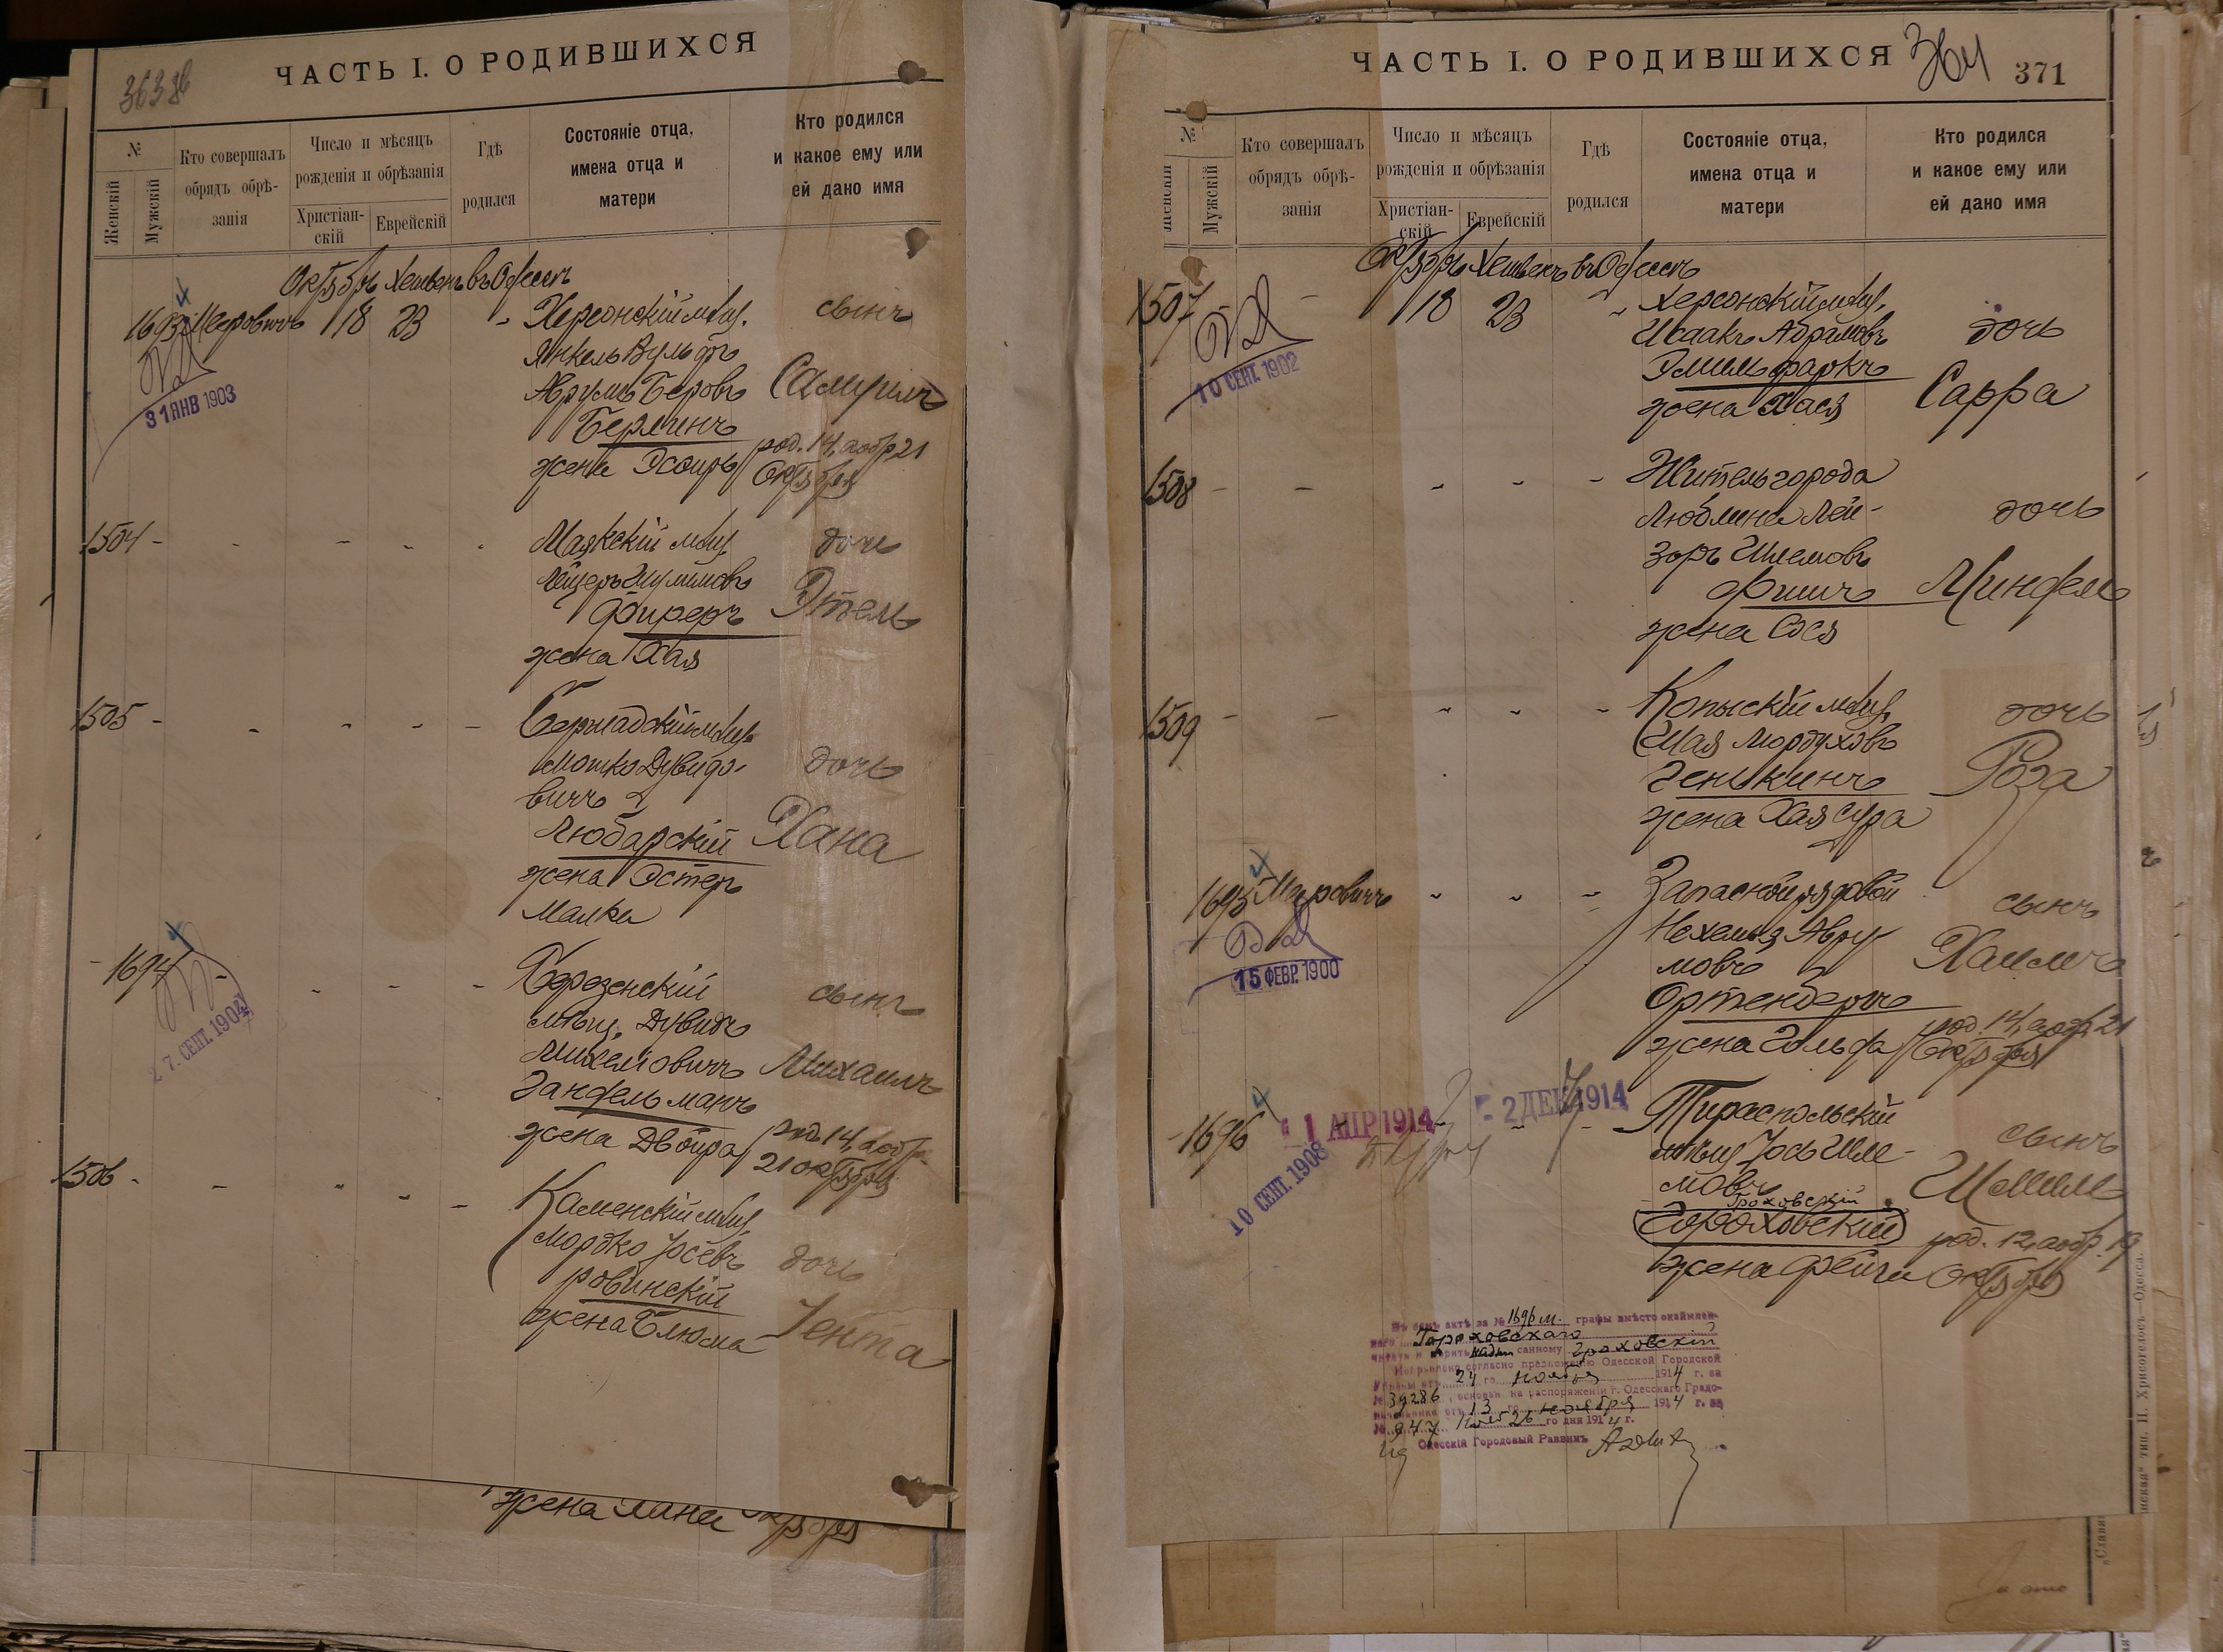 363 об
ЧАСТЬ I. О РОДИВШИХСЯ
№
Женскій
Мужскій
Кто совершалъ
обрядъ обрѣ-
занія
Число и мѣсяцъ
рожденія и обрѣзанія
Христіан-
скій
Еврейскій
Гдѣ
родился
Состояніе отца,
имена отца и
матери
Кто родился
и какое ему или
ей дано имя
Октябрь Хешвенъ въ Одессѣ
1693 Меровичъ 18 23 - Херсонскій мѣщ. сынъ
Янкель Вульфъ
Аврумъ Беровъ Самуилъ
Берлинъ
жена Эсѳирь род. 14, а обр 21
Октября
31 ЯНВ 1903
1504 - - - - - Маякскій мѣщ. дочь
Лейзеръ Шулимовъ
Фиреръ Этель
жена Хая
1505 - - - - - Бершадскій мѣщ.
Мошко Дувидо- дочь
вичъ
Любарскій Хана
жена Эстеръ
Малка
- 1694 - - - - сынъ
мѣщ. Дувидъ
Михелевичъ Михаилъ
Гандельманъ
жена Двойра род 14, а обр.
21 октября
27. СЕНТ. 1904
1506 - - - - - Каменскій мѣщ.
Мордко Іосевъ дочь
Ровинскій
жена Блюма Іента
жена Хана Октября
ЧАСТЬ I. О РОДИВШИХСЯ
364
371
№
Женскій
Мужскій
Кто совершалъ
обрядъ обрѣ-
занія
Число и мѣсяцъ
рожденія и обрѣзанія
Христіан-
скій
Еврейскій
Гдѣ
родился
Состояніе отца,
имена отца и
матери
Кто родился
и какое ему или
ей дано имя
Октябрь Хешвенъ въ Одессѣ
1507 - 18 23 - Херсонскій мѣщ.
Исаакъ Абрамовъ дочь
жена Хася Сарра
10 СЕНТ. 1902
1508 - - - - - Житель города
Люблина Лей- дочь
зоръ Шлемовъ
Фишъ Миндель
жена Сося
1509 - - - - - Копыскій мѣщ. дочь
Шая Мордуховъ
Генькинъ Роза
жена Хая Сура
1695 Меровичъ - - - Запасной рядовой сынъ
Нехемья Авру-
мовъ Хаимъ
Ортенбергъ
жена Гольда род. 14, а обр 21
Октября
15 ФЕВР. 1900
- 1696 1 АПР 1914 - 2 ДЕК 1914 - Тираспольскій
мѣщ Іось Шле- сынъ
мовъ
Гроховскій
Гороховскій
род. 12, а обр. 19
жена Фейга Октября
10 СЕНТ. 1908
Въ семъ актѣ за № 1696 м. графы вмѣсто окаймлен-
наго Гороховскаго
читать и вѣрить надписанному Гроховскій
Исправлено согласно предложенію Одесской Городской
Управы отъ 24 го ноября 1914 г. за
№ 39286, основан. на распоряженіи г. Одесскаго Градо-
начальника отъ 13 го ноября 1914 г. за
№ 947 Нояб 26 го дня 1914 г.
Одесскій Городовый Раввинъ
тип. Н. Хрисогелосъ—Одесса.